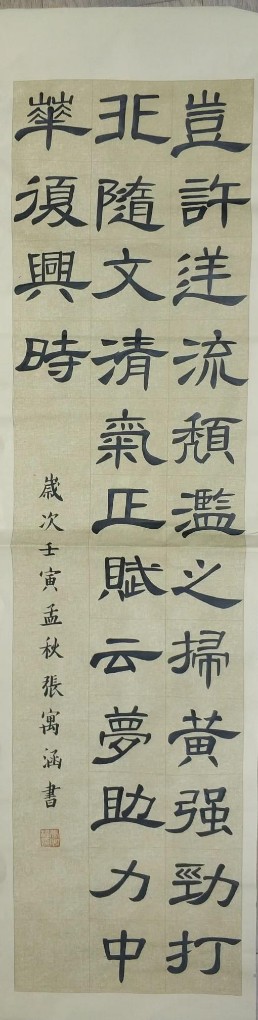 豈許逆流頽濫之掃黄强勁打
非隨文清氣正賦云夢助力中
華復興時
歲次壬寅孟秋張寓涵書